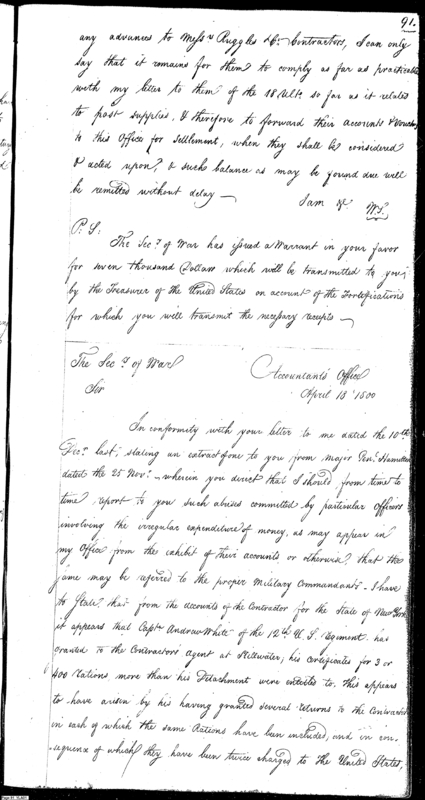 91.
any advances to Messrs Ruggles & Co. Contractors, I can only
say that it remains for them to comply as far as practicable
with my letter to them of the 18 Ulto. so far as it relates
to past supplies, & therefore to forward their accounts & Vouchers
to this Office for Settlement, when they shall be considered
& acted upon, & such balance as may be found due will
be remitted without delay —
I am &c. W.S.
P.S.
The Secy. of War has issued a Warrant in your favor
for seven thousand Dollars which will be transmitted to you
by the Treasurer of the United States on account of the Fortifications
for which you will transmit the necessary receipts —
The Secy. of War
Accountants Office
Sir
April 18th 1800
In conformity with your letter to me dated the 10th
Decr. last, stating an extract of one to you from Major Genl. Hamilton
dated the 25 Novr. — wherein you direct that I should from time to
time, report to you such abuses committed by particular Officers
involving the irregular expenditure of money, as may appear in
my Office from the exhibit of their accounts or otherwise, that the
same may be referred to the proper Military Commandants — I have
to State, that from the accounts of the Contractor for the State of New York
it appears that Captn. Andrew White of the 12th U. S. Regiment has
granted to the Contractors agent at Stillwater, his certificates for 3 or
400 rations more than his Detachment were entitled to. this appears
to have arisen by his having granted several returns to the Contractor
in each of which the same Rations have been included, and in con-
sequence of which they have been twice charged to the United States,